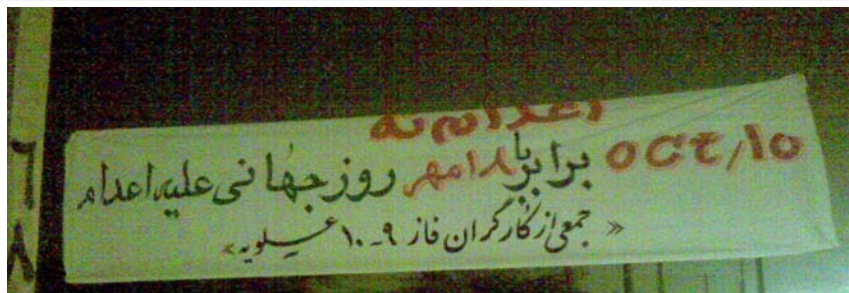 اعدام نه
oct/10 برابر با ۱۸ مهر روز جهانی علیه اعدام
«جمعی از کارگران فاز ۹-۱۰ عسلویه»